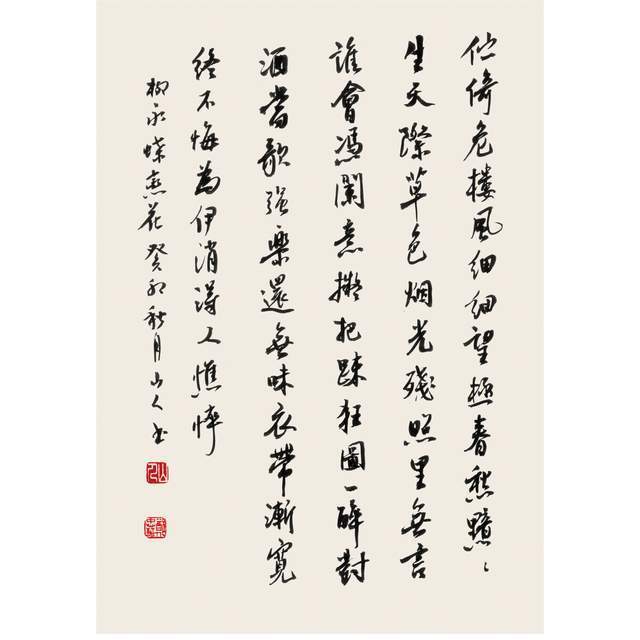 伫倚危樓風細細望極春愁黯〻
生天際草色烟光殘照里無言
誰會憑闌意擬把疎狂圖一醉對
酒當歌強樂還無味衣帶漸寬
終不悔為伊消得人憔悴
柳永蝶恋花癸卯秋月山人书